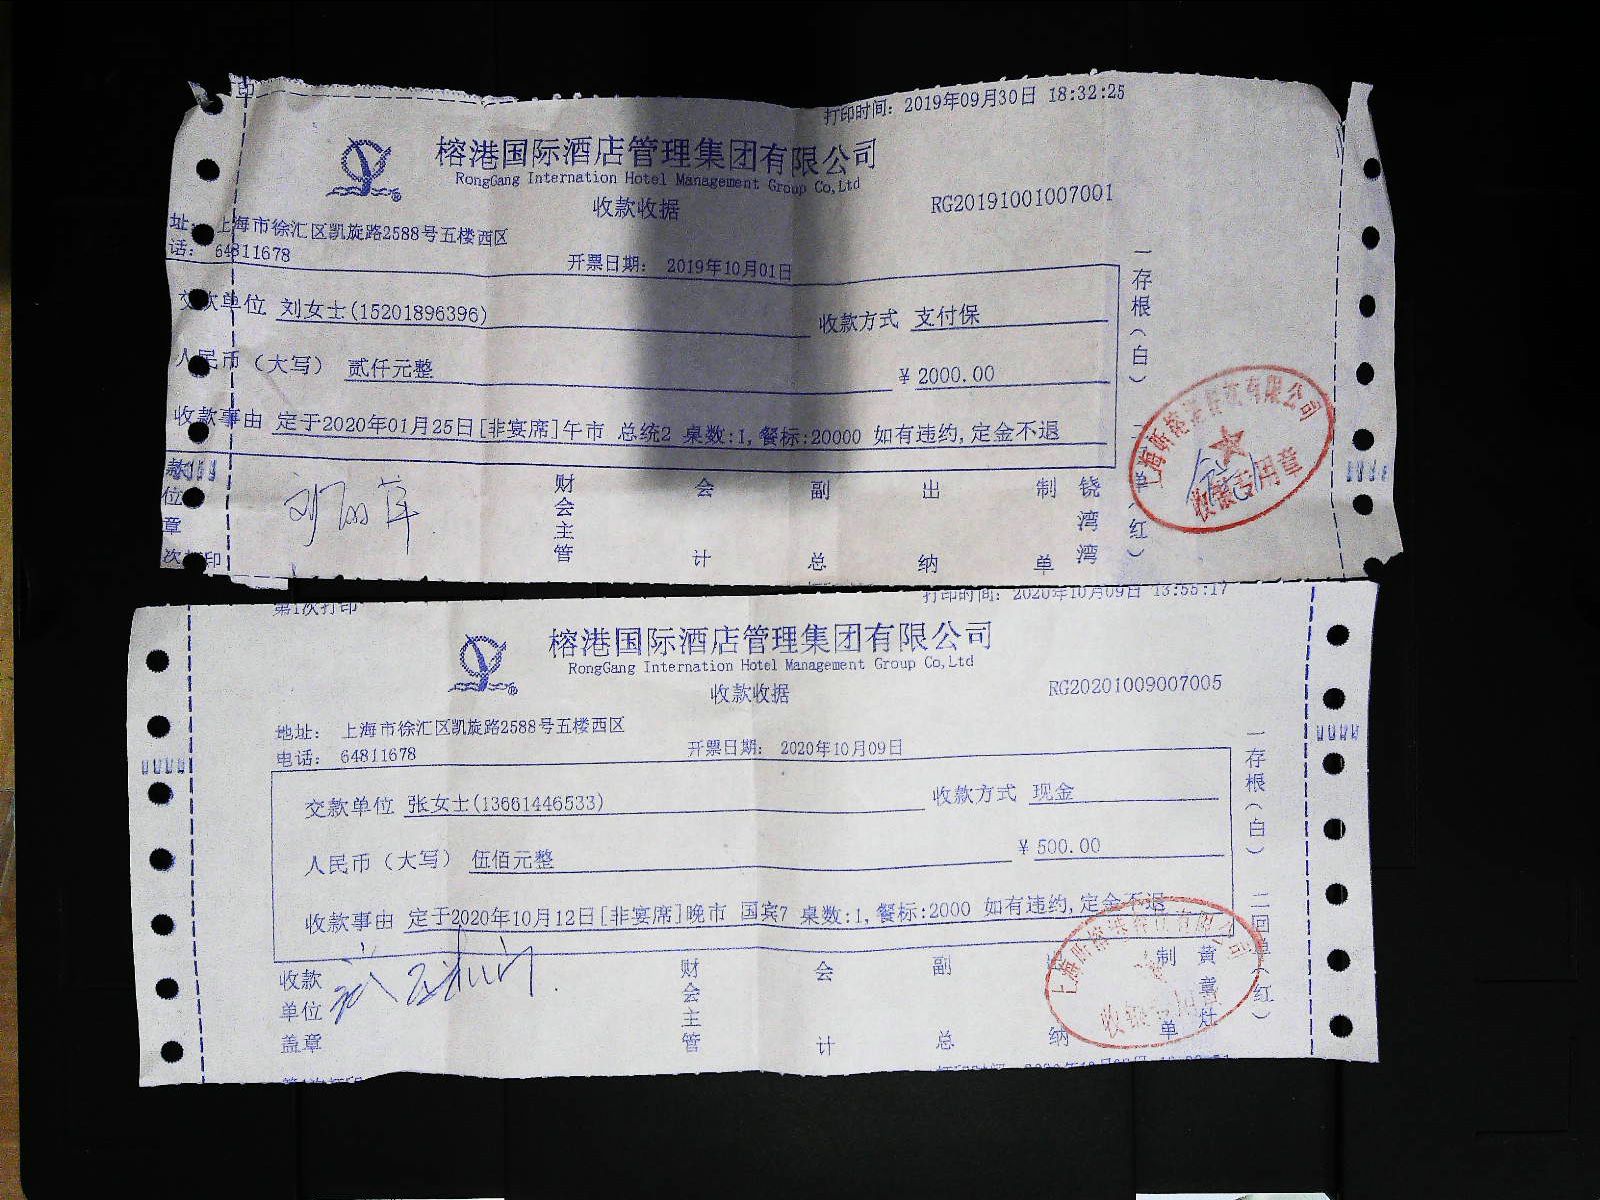 打印时间: 2019年09月30日 18:32:25
榕港国际酒店管理集团有限公司
RongGang Internation Hotel Management Group Co,Ltd
收款收据
RG20191001007001
址: 上海市徐汇区凯旋路2588号五楼西区
话: 64811678
开票日期: 2019年10月01日
交款单位 刘女士(15201896396) 收款方式 支付保
人民币（大写） 贰仟元整 ¥ 2000.00
收款事由 定于2020年01月25日[非宴席]午市 总统2 桌数:1,餐标:20000 如有违约,定金不退
一存根(白)
款
位
章
财会主管 会计 副总 出纳 制单 饶湾湾
单(红)
收银专用章
次打印
第1次打印
打印时间: 2020年10月09日 13:55:17
榕港国际酒店管理集团有限公司
RongGang Internation Hotel Management Group Co,Ltd
收款收据
RG20201009007005
地址: 上海市徐汇区凯旋路2588号五楼西区
电话: 64811678
开票日期: 2020年10月09日
交款单位 张女士(13661446533) 收款方式 现金
人民币（大写） 伍佰元整 ¥ 500.00
收款事由 定于2020年10月12日[非宴席]晚市 国宾7 桌数:1,餐标:2000 如有违约,定金不退
一存根(白) 二回单(红)
收款
单位
盖章
财会主管 会计 副总 纳 制单